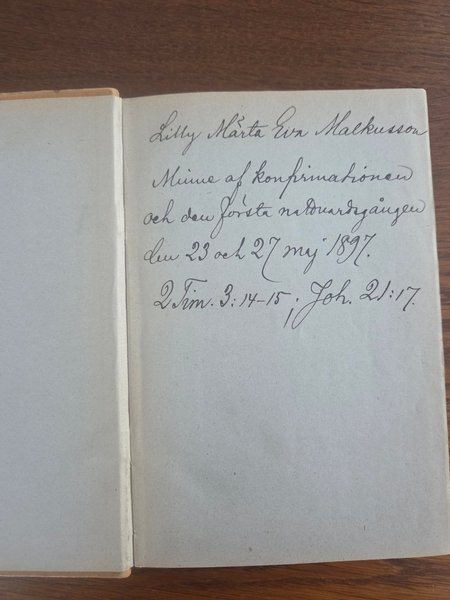 Lilly Märta Eva Malkusson
Minne af konfirmationen
och den första nattvardsgången
den 23 och 27 maj 1897.
2 Tim. 3:14-15; Joh. 21:17.